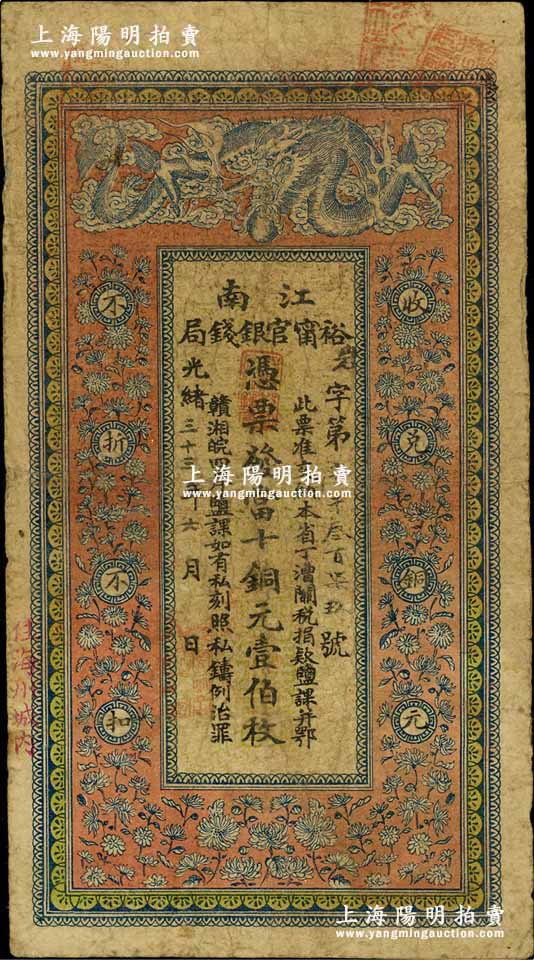 上海陽明拍賣
www.yangmingauction.com
江南
裕甯官銀錢局
字第 叁百柒玖號
此票准 本省丁漕關稅捐款鹽課并鄂
憑票發當十銅元壹佰枚
贛湘皖 鹽課如有私刻照私鑄例治罪
光緒三十三年 月 日
收兌銅元
不折不扣
上海陽明拍賣
www.yangmingauction.com
住海州城內
上海陽明拍賣
www.yangmingauction.com